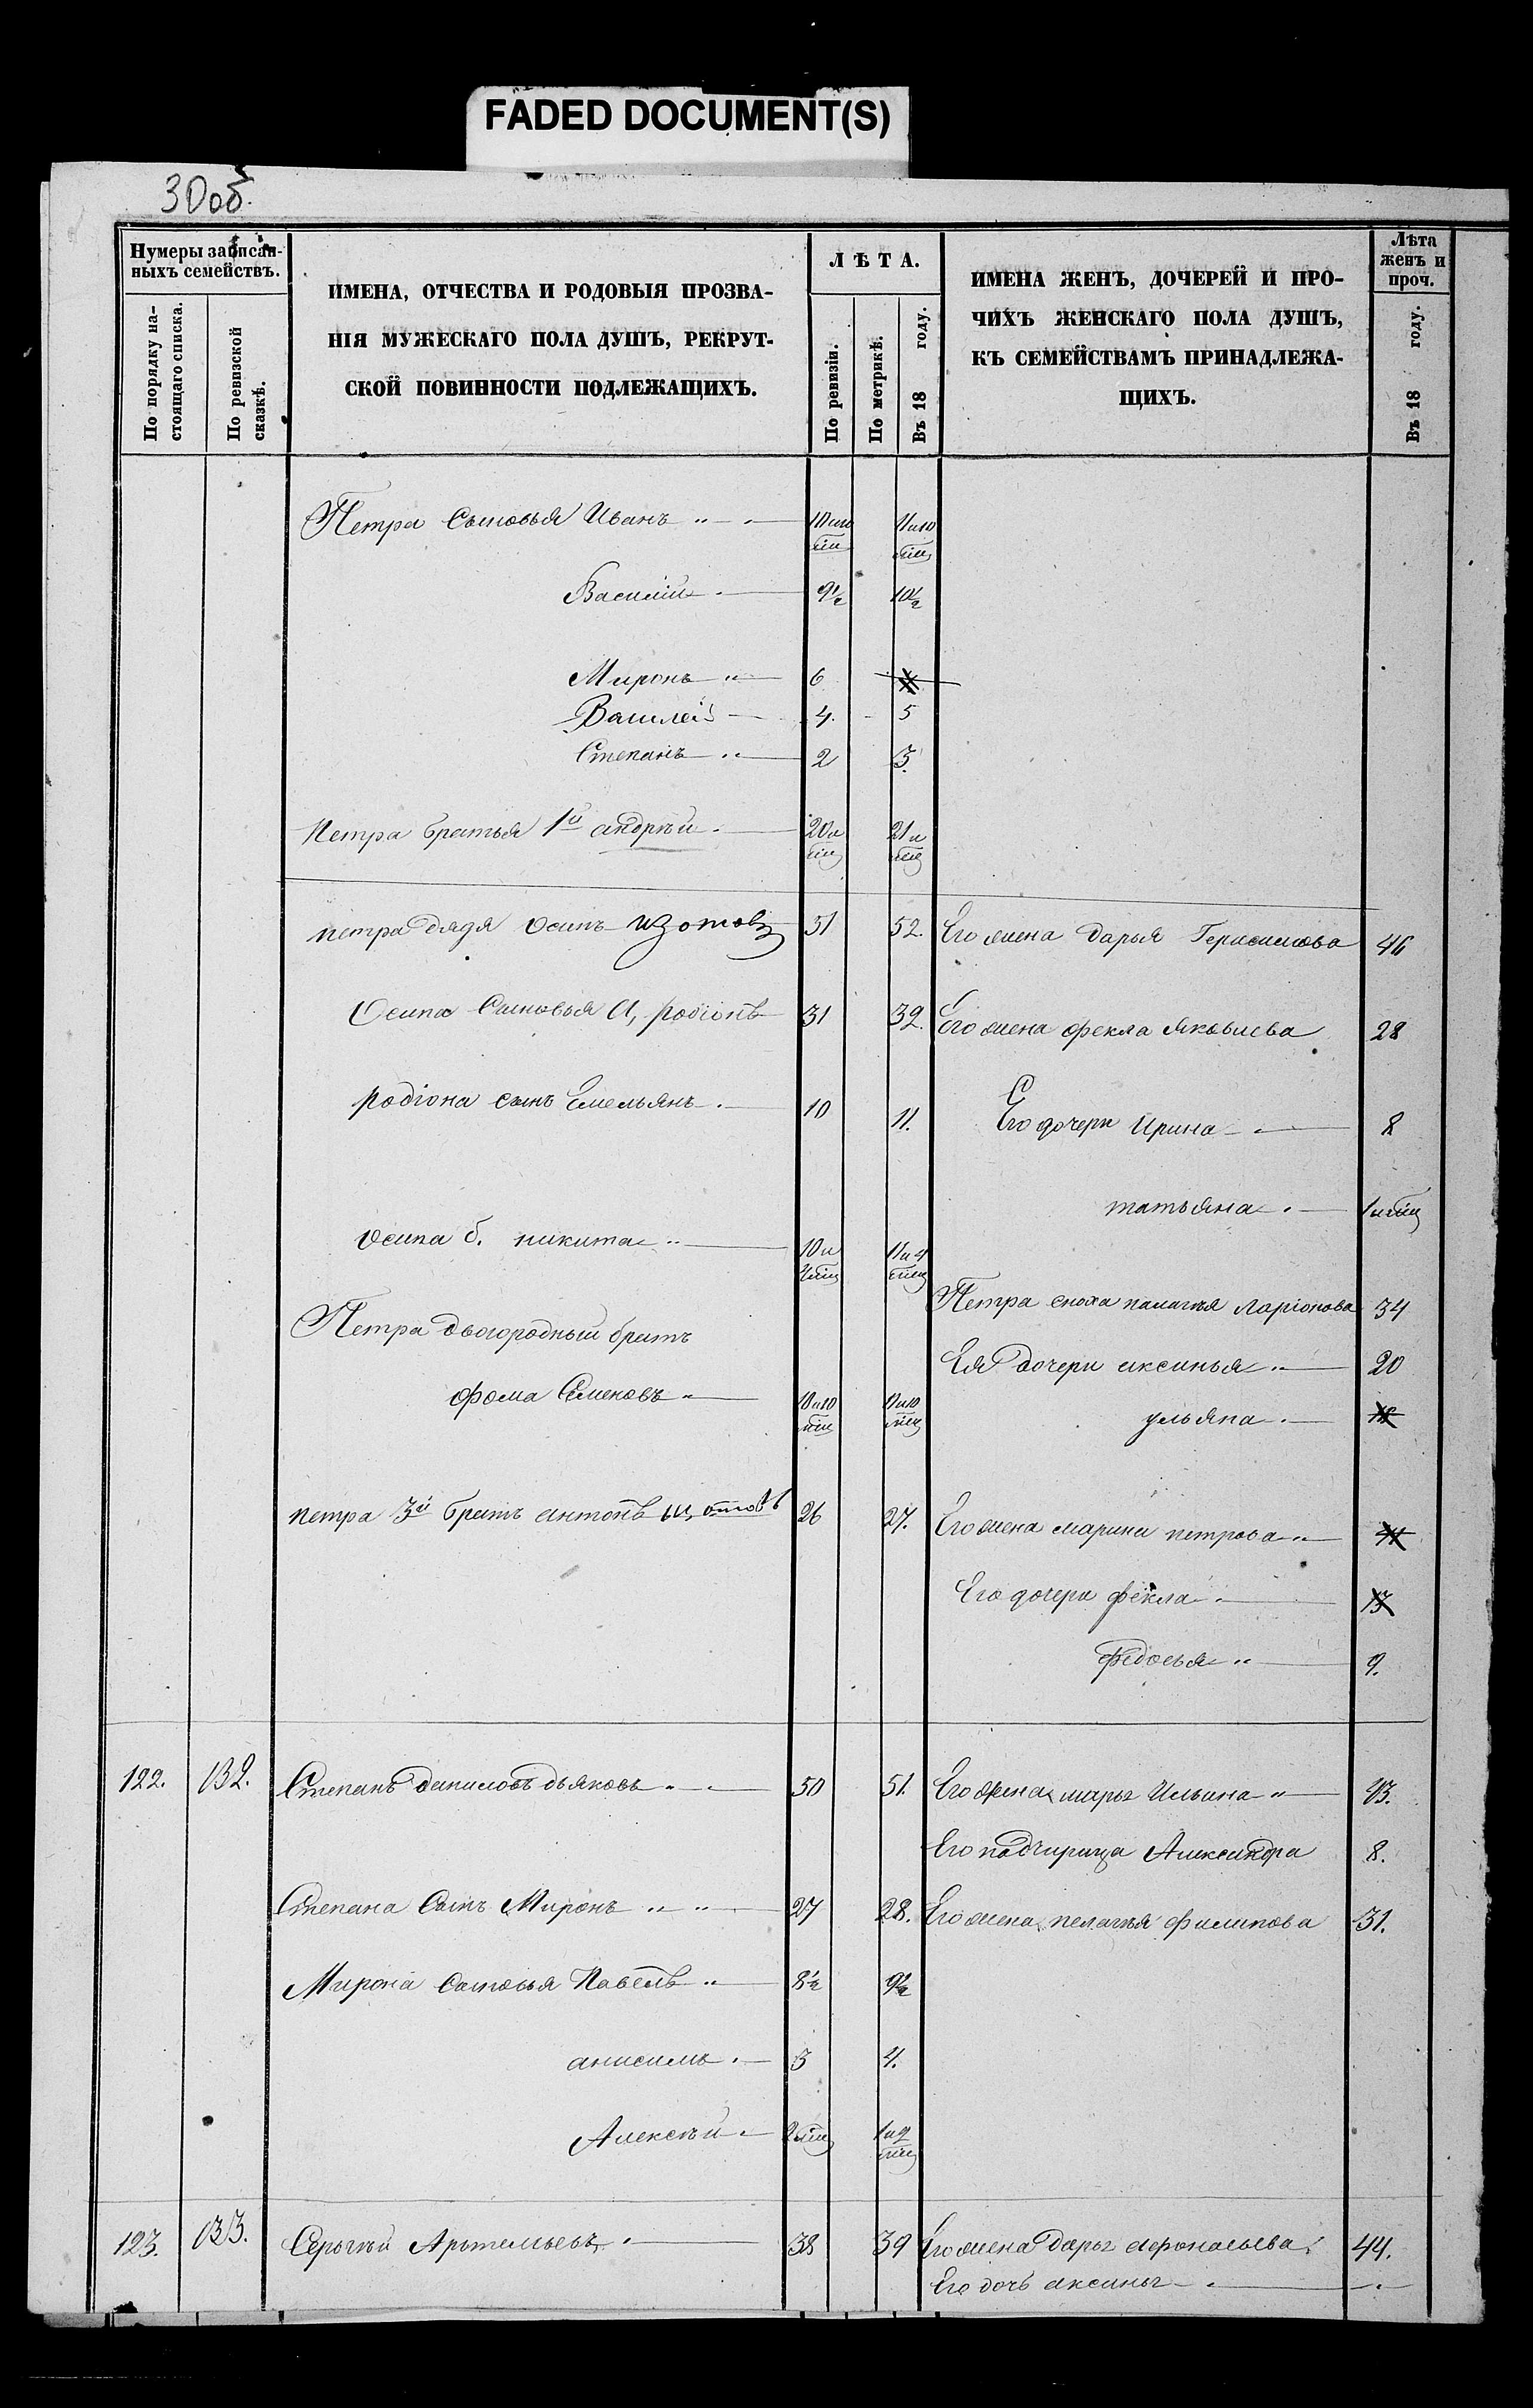 FADED DOCUMENT(S)
30об.
Нумеры записан-
ныхъ семействъ.
По порядку на-
стоящаго списка.
По ревизской
сказкѣ.
ИМЕНА, ОТЧЕСТВА И РОДОВЫЯ ПРОЗВА-
НІЯ МУЖЕСКАГО ПОЛА ДУШЪ, РЕКРУТ-
СКОЙ ПОВИННОСТИ ПОДЛЕЖАЩИХЪ.
ЛѢТА.
По ревизіи.
По метрикѣ.
Въ 18 году.
ИМЕНА ЖЕНЪ, ДОЧЕРЕЙ И ПРО-
ЧИХЪ ЖЕНСКАГО ПОЛА ДУШЪ,
КЪ СЕМЕЙСТВАМЪ ПРИНАДЛЕЖА-
ЩИХЪ.
Лѣта
женъ и
проч.
Въ 18 году.
Петра Сыновья Иванъ 10 и 10 мѣц 11 и 10 мѣц
Василій 9½ 10½
Миронъ 6
Василей 4. 5
Степанъ 2 3.
Петра братья 1й андрѣй 20 и мѣц 21 и мѣц
петра дядя Осипъ изотовъ 51 52. Его жена Дарья Герасимова 46
Осипа Сыновья родіонъ 31 32. Его жена фекла Яковлева 28
родіона сынъ Емельянъ 10 11. Его дочери Ирина 8
татьяна 1 и мѣц
Осипа б. никита 10 и 4 мѣц 11 и 4 мѣц
Петра сноха палагѣя ларіонова 34
Петра двогородный братъ
Ея дочери аксинья 20
фома Семеновъ 10 и 10 мѣц 11 и 10 мѣц
ульяна
петра 3й братъ антонъ 26 27. Его жена марина петрова
Его дочери фекла 13
федосья 9.
122. 132. Степанъ даниловъ дьяковъ 50 51. Его жена марья Ильина 43.
Его падчирица Александра 8.
Степана Сынъ Миронъ 27 28. Его жена пелагѣя филипова 31.
Мирона Сыновья Павелъ 8½ 9½
анисимъ 3 4.
Алексѣй 2 мѣц 1 и 2 мѣц
123. 133. Сергѣй Артемьевъ 38 39 Его жена Дарья афонасьева 44.
Его дочь аксинья